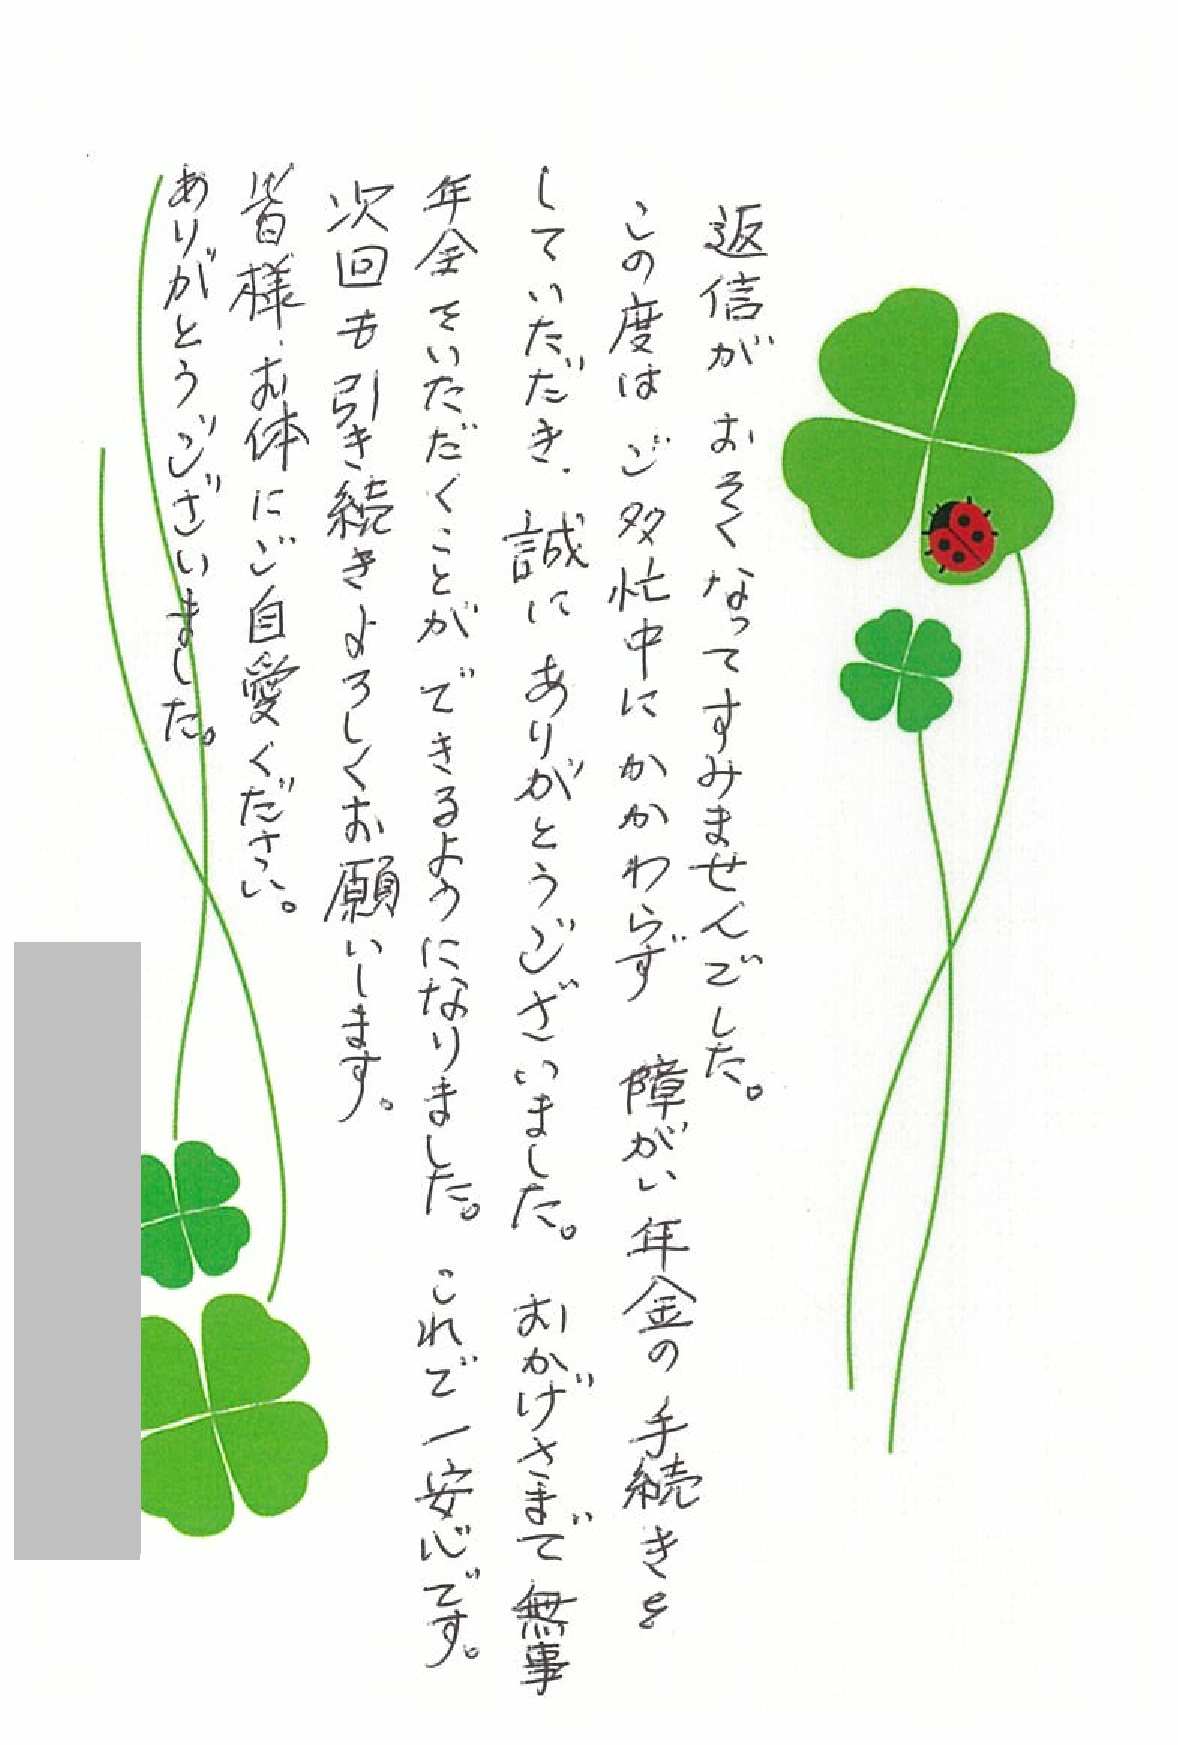 返信が おそくなってすみませんでした。
この度は ご多忙中にかかわらず 障がい年金の手続きを
していただき、誠に ありがとうございました。 おかげさまで無事
年金をいただくことが できるようになりました。 これで一安心です。
次回も引き続きよろしくお願いします。
皆様、お体にご自愛ください。
ありがとうございました。